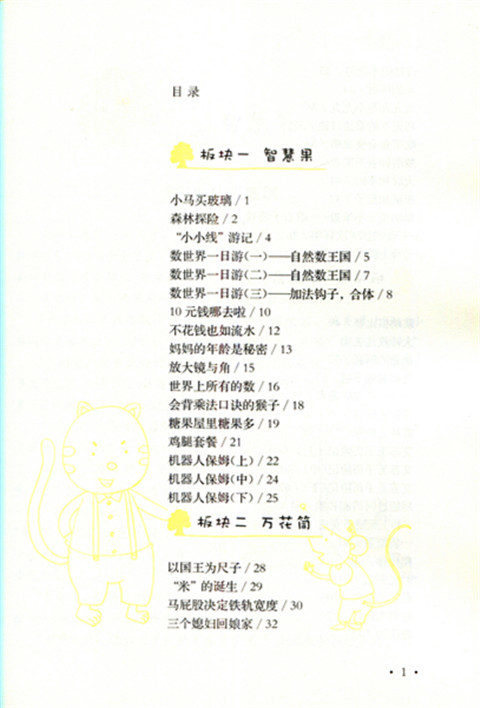 目录
板块一 智慧果
小马买玻璃 / 1
森林探险 / 2
“小小线”游记 / 4
数世界一日游(一)——自然数王国 / 5
数世界一日游(二)——自然数王国 / 7
数世界一日游(三)——加法钩子,合体 / 8
10 元钱哪去啦 / 10
不花钱也如流水 / 12
妈妈的年龄是秘密 / 13
放大镜与角 / 15
世界上所有的数 / 16
会背乘法口诀的猴子 / 18
糖果屋里糖果多 / 19
鸡腿套餐 / 21
机器人保姆(上) / 22
机器人保姆(中) / 24
机器人保姆(下) / 25
板块二 万花筒
以国王为尺子 / 28
“米”的诞生 / 29
马屁股决定铁轨宽度 / 30
三个媳妇回娘家 / 32
• 1 •